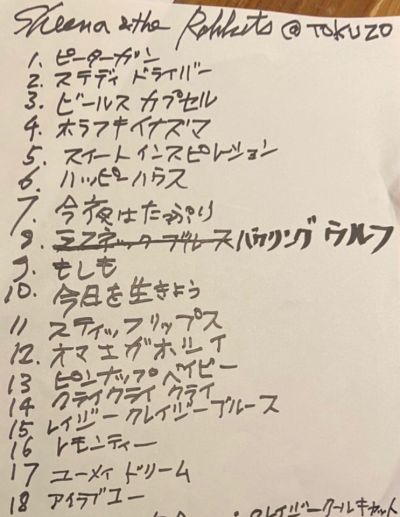 Sheena & the Rokkets @ TOKUZO
1. ピーターガン
2. ステディ ドライバー
3. ビールス カプセル
4. ホラフキイナズマ
5. スイートインスピレーション
6. ハッピーハウス
7. 今夜はたっぷり
8. ラフネックブルース ハウリング ウルフ
9. もしも
10. 今日を生きよう
11 スティッフリップス
12. オマエガホシイ
13 ピンナップベイビー
14 クライクライ クライ
15 レイジー クレイジーブルース
16 レモンティー
17 ユーメイ ドリーム
18 アイラブユー
クレイジークールキャット